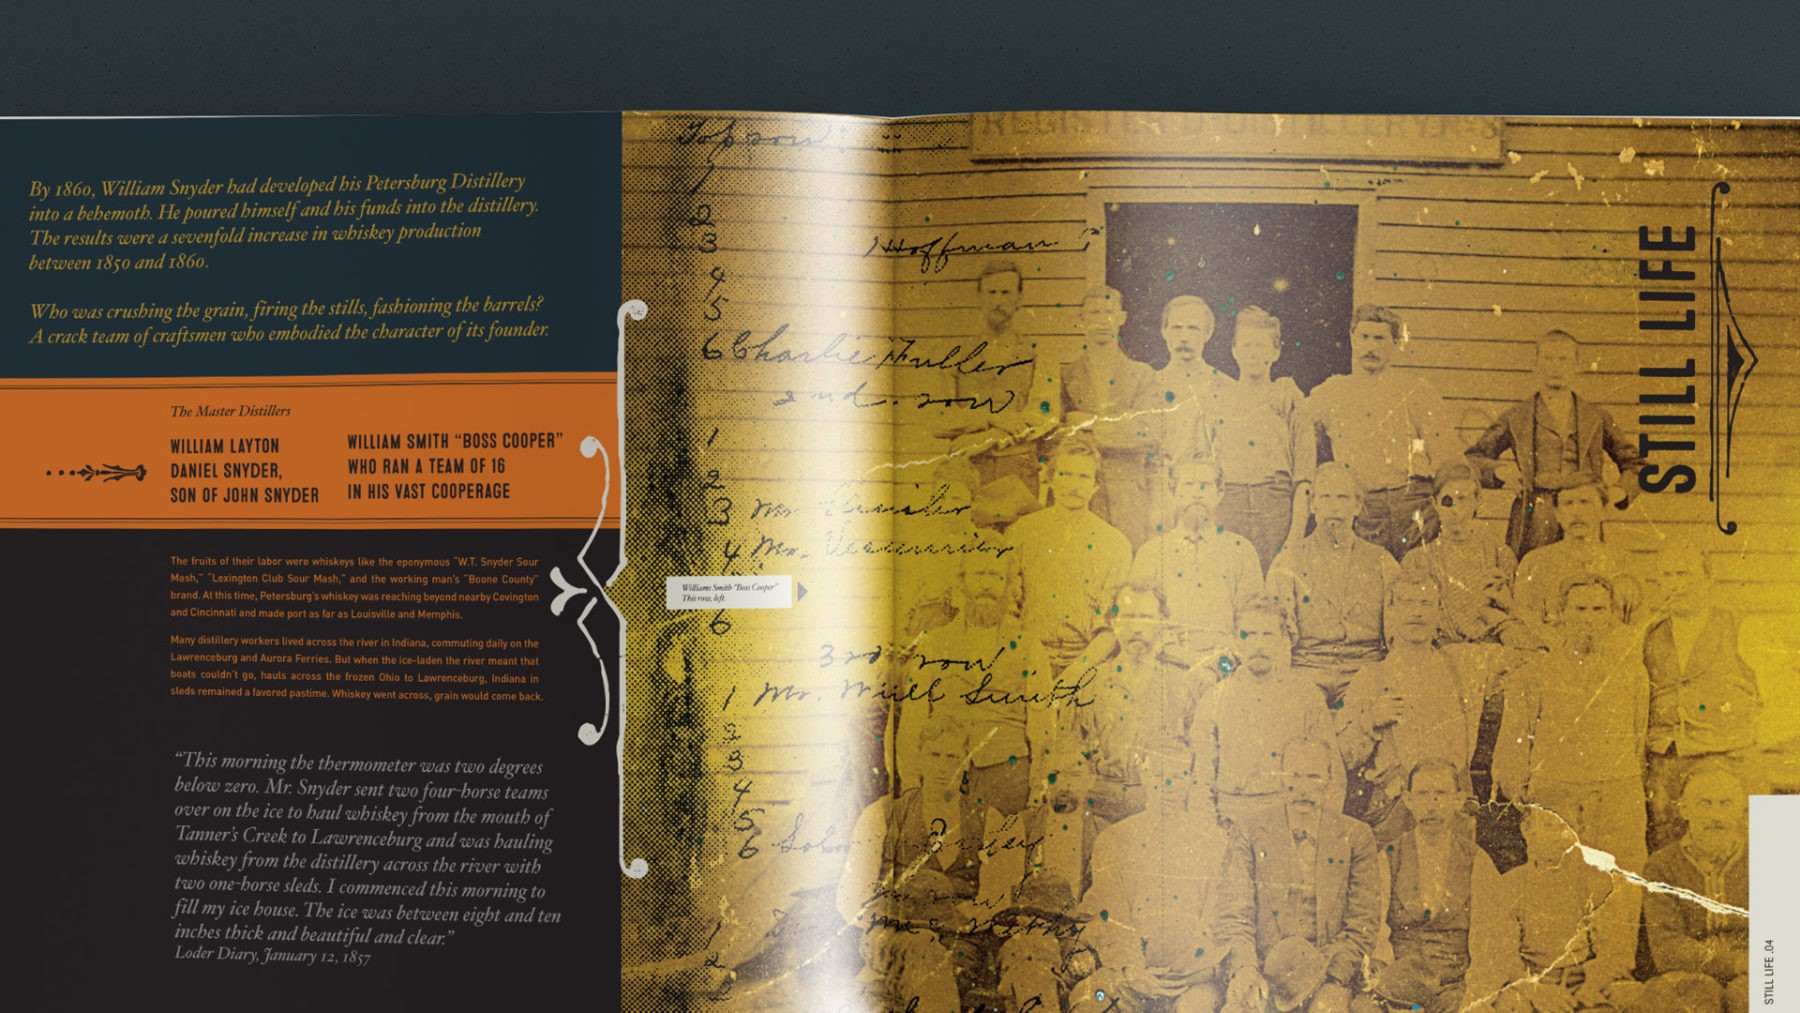 By 1860, William Snyder had developed his Petersburg Distillery
into a behemoth. He poured himself and his funds into the distillery.
The results were a sevenfold increase in whiskey production
between 1850 and 1860.
Who was crushing the grain, firing the stills, fashioning the barrels?
A crack team of craftsmen who embodied the character of its founder.
The Master Distillers
WILLIAM LAYTON
DANIEL SNYDER,
SON OF JOHN SNYDER
WILLIAM SMITH “BOSS COOPER”
WHO RAN A TEAM OF 16
IN HIS VAST COOPERAGE
The fruits of their labor were whiskeys like the eponymous “W.T. Snyder Sour
Mash,” “Lexington Club Sour Mash,” and the working man’s “Boone County”
brand. At this time, Petersburg’s whiskey was reaching beyond nearby Covington
and Cincinnati and made port as far as Louisville and Memphis.
Many distillery workers lived across the river in Indiana, commuting daily on the
Lawrenceburg and Aurora Ferries. But when the ice-laden the river meant that
boats couldn’t go, hauls across the frozen Ohio to Lawrenceburg, Indiana in
sleds remained a favored pastime. Whiskey went across, grain would come back.
“This morning the thermometer was two degrees
below zero. Mr. Snyder sent two four-horse teams
over on the ice to haul whiskey from the mouth of
Tanner’s Creek to Lawrenceburg and was hauling
whiskey from the distillery across the river with
two one-horse sleds. I commenced this morning to
fill my ice house. The ice was between eight and ten
inches thick and beautiful and clear.”
Loder Diary, January 12, 1857
Top row:
1
2
3 Hoffman
4
5
6 Charlie Fuller
2nd. row
1
2
3 Mr.
4 Mr.
Williams Smith “Boss Cooper”
This row, left.
6
3rd row
1 Mr. Will Smith
2
3
4
5
6
row
1
2
REGISTERED DISTILLERY
STILL LIFE
STILL LIFE .04